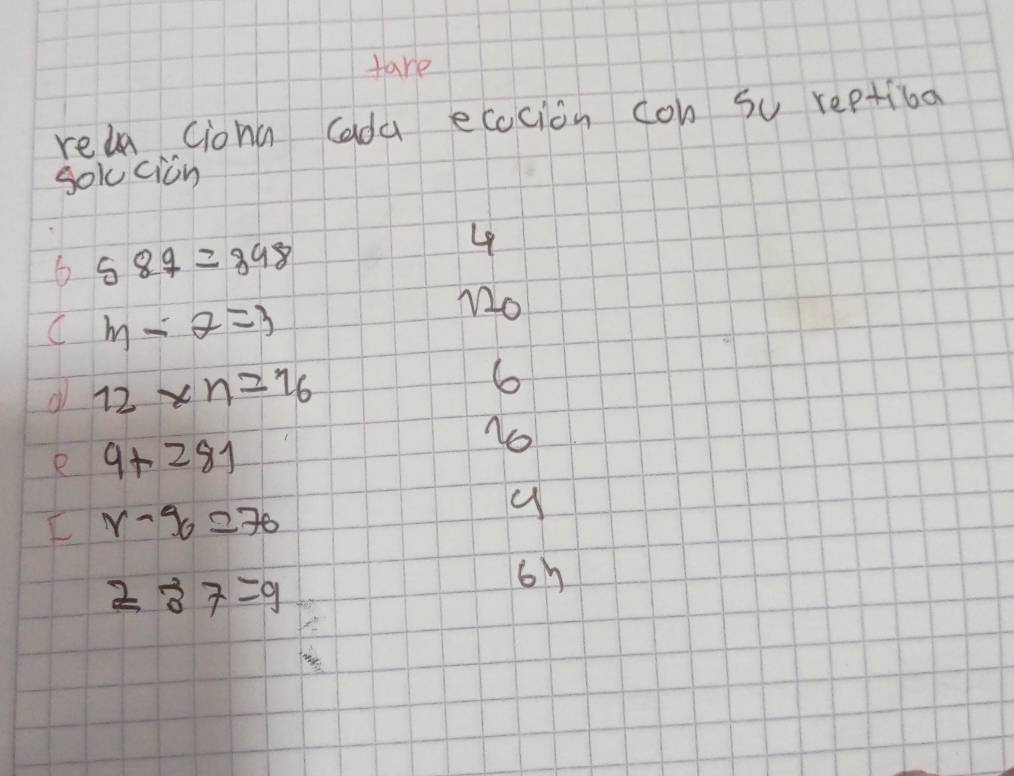 tare
relaciona cada ecoción con su reptiba
solución
b 587=348 4
c m÷2=3 120
d 12×n=16 6
e 9+281 20
r-96=76 4
237=9 6m